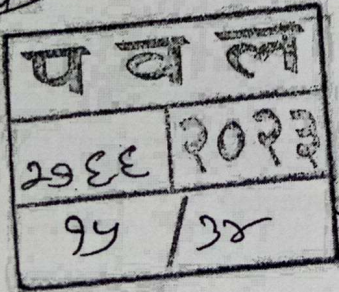 प व ल
२७६६ २०२३
१५ / ३४